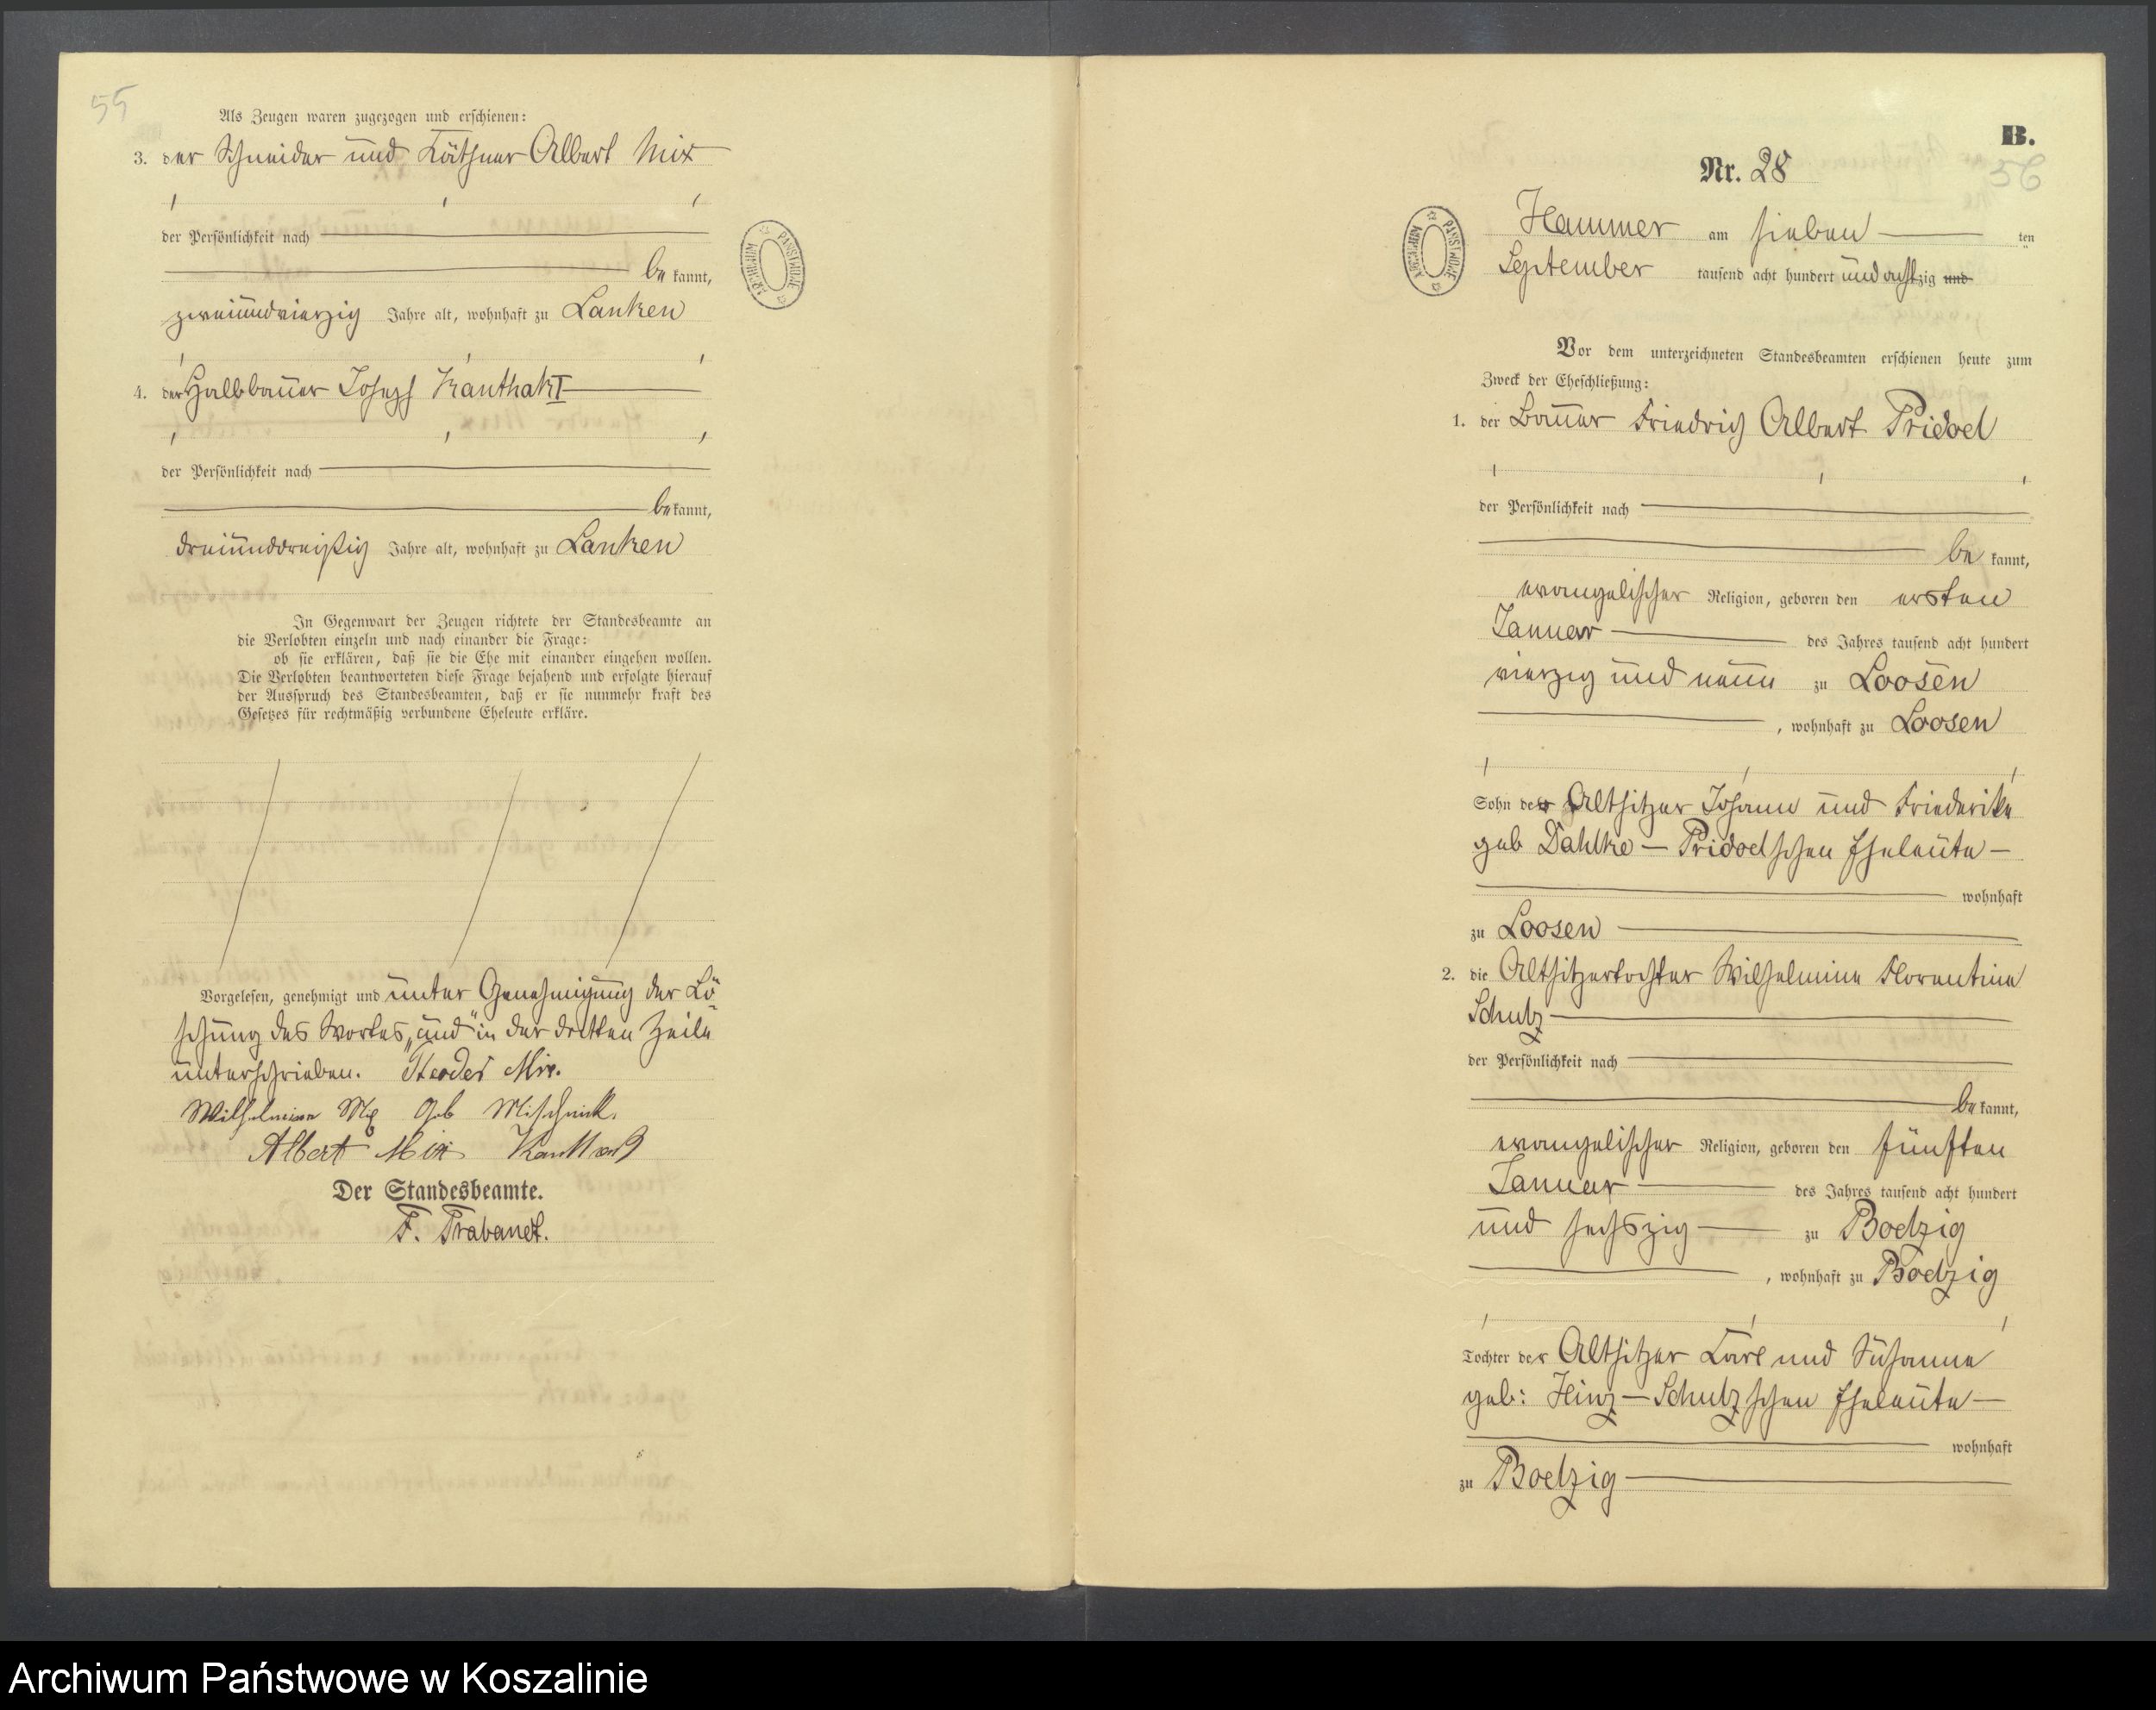 55
Als Zeugen waren zugezogen und erschienen:
3. der Schneider und Käthner Albert Mix
der Persönlichkeit nach
be kannt,
zweiundvierzig Jahre alt, wohnhaft zu Lanken
4. der Halbbauer Joseph Kanthak I
der Persönlichkeit nach
be kannt,
dreiunddreißig Jahre alt, wohnhaft zu Lanken
In Gegenwart der Zeugen richtete der Standesbeamte an
die Verlobten einzeln und nach einander die Frage:
ob sie erklären, daß sie die Ehe mit einander eingehen wollen.
Die Verlobten beantworteten diese Frage bejahend und erfolgte hierauf
der Ausspruch des Standesbeamten, daß er sie nunmehr kraft des
Gesetzes für rechtmäßig verbundene Eheleute erkläre.
Vorgelesen, genehmigt und unter Genehmigung der Lö-
schung des Wortes „und" in der dritten Zeile
unterschrieben. Theodor Mix.
Wilhelmine Mix geb Mischnick.
Albert Mix Kanthak
Der Standesbeamte.
F. Trabandt.
ARCHIWUM PAŃSTWOWE
B.
56
Nr. 28
Hammer am sieben ten
September tausend acht hundert und achtzig und
ARCHIWUM PAŃSTWOWE
Vor dem unterzeichneten Standesbeamten erschienen heute zum
Zweck der Eheschließung:
1. der Bauer Friedrich Albert Pridoel
der Persönlichkeit nach
be kannt,
evangelischer Religion, geboren den ersten
Januar des Jahres tausend acht hundert
vierzig und neun zu Loosen
, wohnhaft zu Loosen
Sohn der Altsitzer Johann und Friederike
geb Dahlke - Pridoelschen Eheleute -
wohnhaft
zu Loosen
2. die Altsitzertochter Wilhelmine Florentine
Schulz
der Persönlichkeit nach
be kannt,
evangelischer Religion, geboren den fünften
Januar des Jahres tausend acht hundert
und sechszig zu Boelzig
, wohnhaft zu Boelzig
Tochter der Altsitzer Carl und Susanne
geb: Hinz - Schulzschen Eheleute -
wohnhaft
zu Boelzig
Archiwum Państwowe w Koszalinie